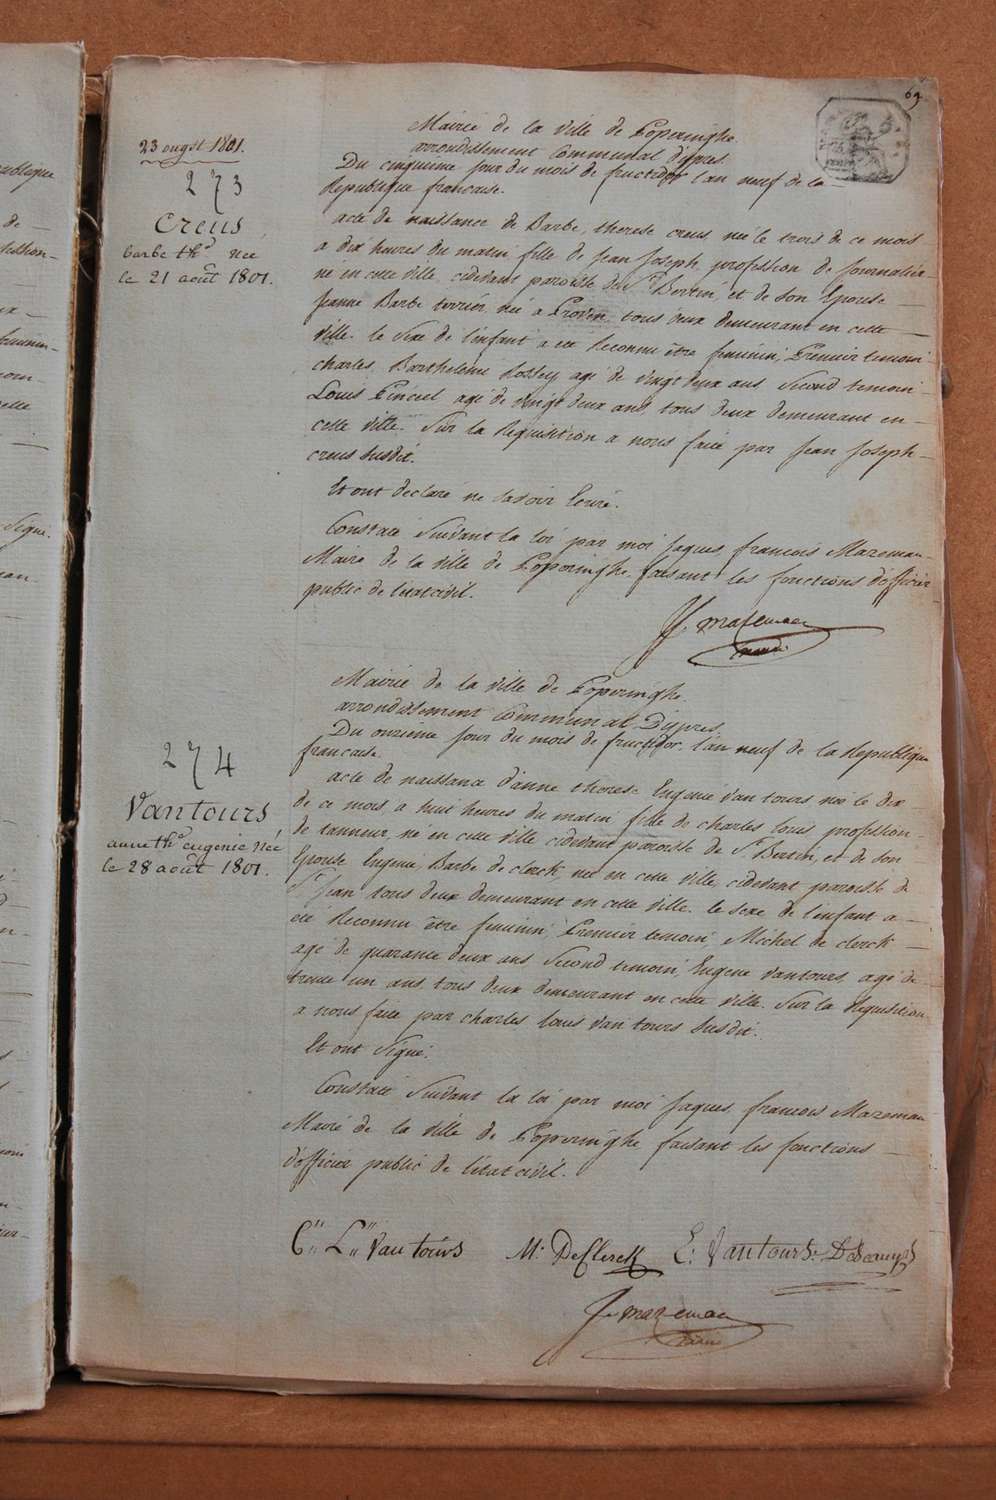 69
Mairie de la ville de Poperinghe
arrondissement Communal d'ipres
23 ougst 1801.
Du cinquieme jour du mois de fructidor l'an neuf de la
Republique francaise.
273
Creus
barbe thse née
le 21 août 1801.
acte de naissance de Barbe, therese creus, née le trois de ce mois
a dix heures du matin, fille de jean Joseph, profession de journalier
né en cette ville, cidevant paroisse de St Bertin, et de son Epouse
Jeanne Barbe terrier, née a Proven, tous deux demeurant en cette
ville. le sexe de l'enfant a été Reconnu être feminin, Premier temoin
charles, Barthelemi Rossey agé de vingt deux ans second temoin
Louis Pinceel agé de vingt deux ans tous deux demeurant en
cette ville. Sur la Requisition a nous faite par Jean Joseph
creus susdit.
Et ont declaré ne savoir Ecrire.
Constaté suivant la loi par moi Jaques, francois Mazeman
Maire de la ville de Poperinghe faisant les fonctions d'officier
public de l'etat civil.
J. mazeman
maire
Mairie de la ville de Poperinghe
arrondissement Communal D'ipres
Du onzieme jour du mois de fructidor l'an neuf de la Republique
francaise.
274
Vantours
anne thse eugenie née
le 28 août 1801.
acte de naissance d'anne therese Eugenie Van tours née le dix
de ce mois, a huit heures du matin, fille de charles louis, profession
de tanneur, né en cette ville cidevant paroisse de St Bertin, et de son
Epouse Eugenie, Barbe de clerck, née en cette ville, cidevant paroisse de
St Jean tous deux demeurant en cette ville. le sexe de l'enfant a
été Reconnu être feminin, Premier temoin, Michel de clerck
agé de quarante deux ans second temoin, Eugene Vantours, agé de
trente un ans, tous deux demeurant en cette ville. Sur la Requisition
a nous faite par charles louis Van tours susdit.
Et ont signé.
Constaté suivant la loi par moi Jaques francois Mazeman
Maire de la ville de Poperinghe faisant les fonctions
d'officier public de l'etat civil.
C" L" Van tours M. DeClerck E: Vantours
J. mazeman
maire